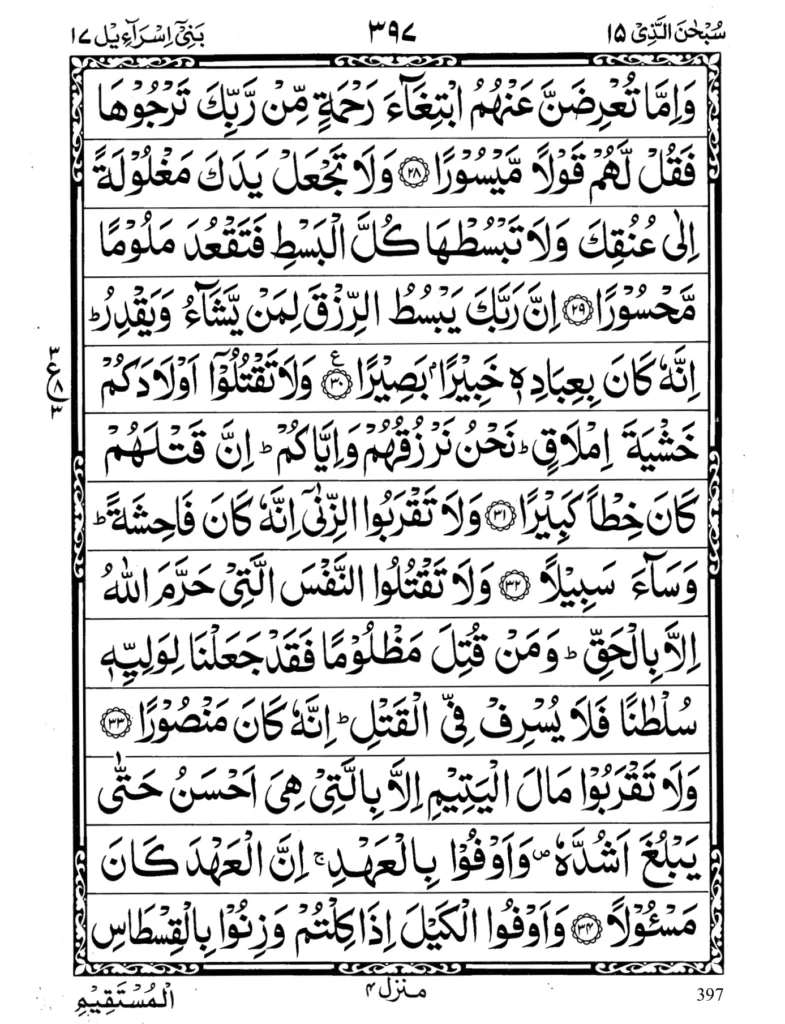 سُبْحٰنَ الَّذِیْ ١٥ ٣٩٧ بَنِیْٓ اِسْرَآءِیْل ١٧
وَاِمَّا تُعْرِضَنَّ عَنْهُمُ ابْتِغَآءَ رَحْمَةٍ مِّنْ رَّبِّكَ تَرْجُوْهَا
فَقُلْ لَّهُمْ قَوْلًا مَّيْسُوْرًا ﴿٢٨﴾ وَلَا تَجْعَلْ يَدَكَ مَغْلُوْلَةً
اِلٰى عُنُقِكَ وَلَا تَبْسُطْهَا كُلَّ الْبَسْطِ فَتَقْعُدَ مَلُوْمًا
مَّحْسُوْرًا ﴿٢٩﴾ اِنَّ رَبَّكَ يَبْسُطُ الرِّزْقَ لِمَنْ يَّشَآءُ وَيَقْدِرُ ؕ
اِنَّهٗ كَانَ بِعِبَادِهٖ خَبِيْرًاۢ بَصِيْرًا ﴿٣٠﴾ ع وَلَا تَقْتُلُوْٓا اَوْلَادَكُمْ
٣ ع ٨ ٣
خَشْيَةَ اِمْلَاقٍ ؕ نَحْنُ نَرْزُقُهُمْ وَاِيَّاكُمْ ؕ اِنَّ قَتْلَهُمْ
كَانَ خِطْاً كَبِيْرًا ﴿٣١﴾ وَلَا تَقْرَبُوا الزِّنٰٓى اِنَّهٗ كَانَ فَاحِشَةً ؕ
وَسَآءَ سَبِيْلًا ﴿٣٢﴾ وَلَا تَقْتُلُوا النَّفْسَ الَّتِیْ حَرَّمَ اللّٰهُ
اِلَّا بِالْحَقِّ ؕ وَمَنْ قُتِلَ مَظْلُوْمًا فَقَدْ جَعَلْنَا لِوَلِيِّهٖ
سُلْطٰنًا فَلَا يُسْرِفْ فِّی الْقَتْلِ ؕ اِنَّهٗ كَانَ مَنْصُوْرًا ﴿٣٣﴾
وَلَا تَقْرَبُوْا مَالَ الْيَتِيْمِ اِلَّا بِالَّتِیْ هِیَ اَحْسَنُ حَتّٰى
يَبْلُغَ اَشُدَّهٗ ص وَاَوْفُوْا بِالْعَهْدِ ۚ اِنَّ الْعَهْدَ كَانَ
مَسْـُٔوْلًا ﴿٣٤﴾ وَاَوْفُوا الْكَيْلَ اِذَا كِلْتُمْ وَزِنُوْا بِالْقِسْطَاسِ
397 منزل ٤ الْمُسْتَقِيْمِ